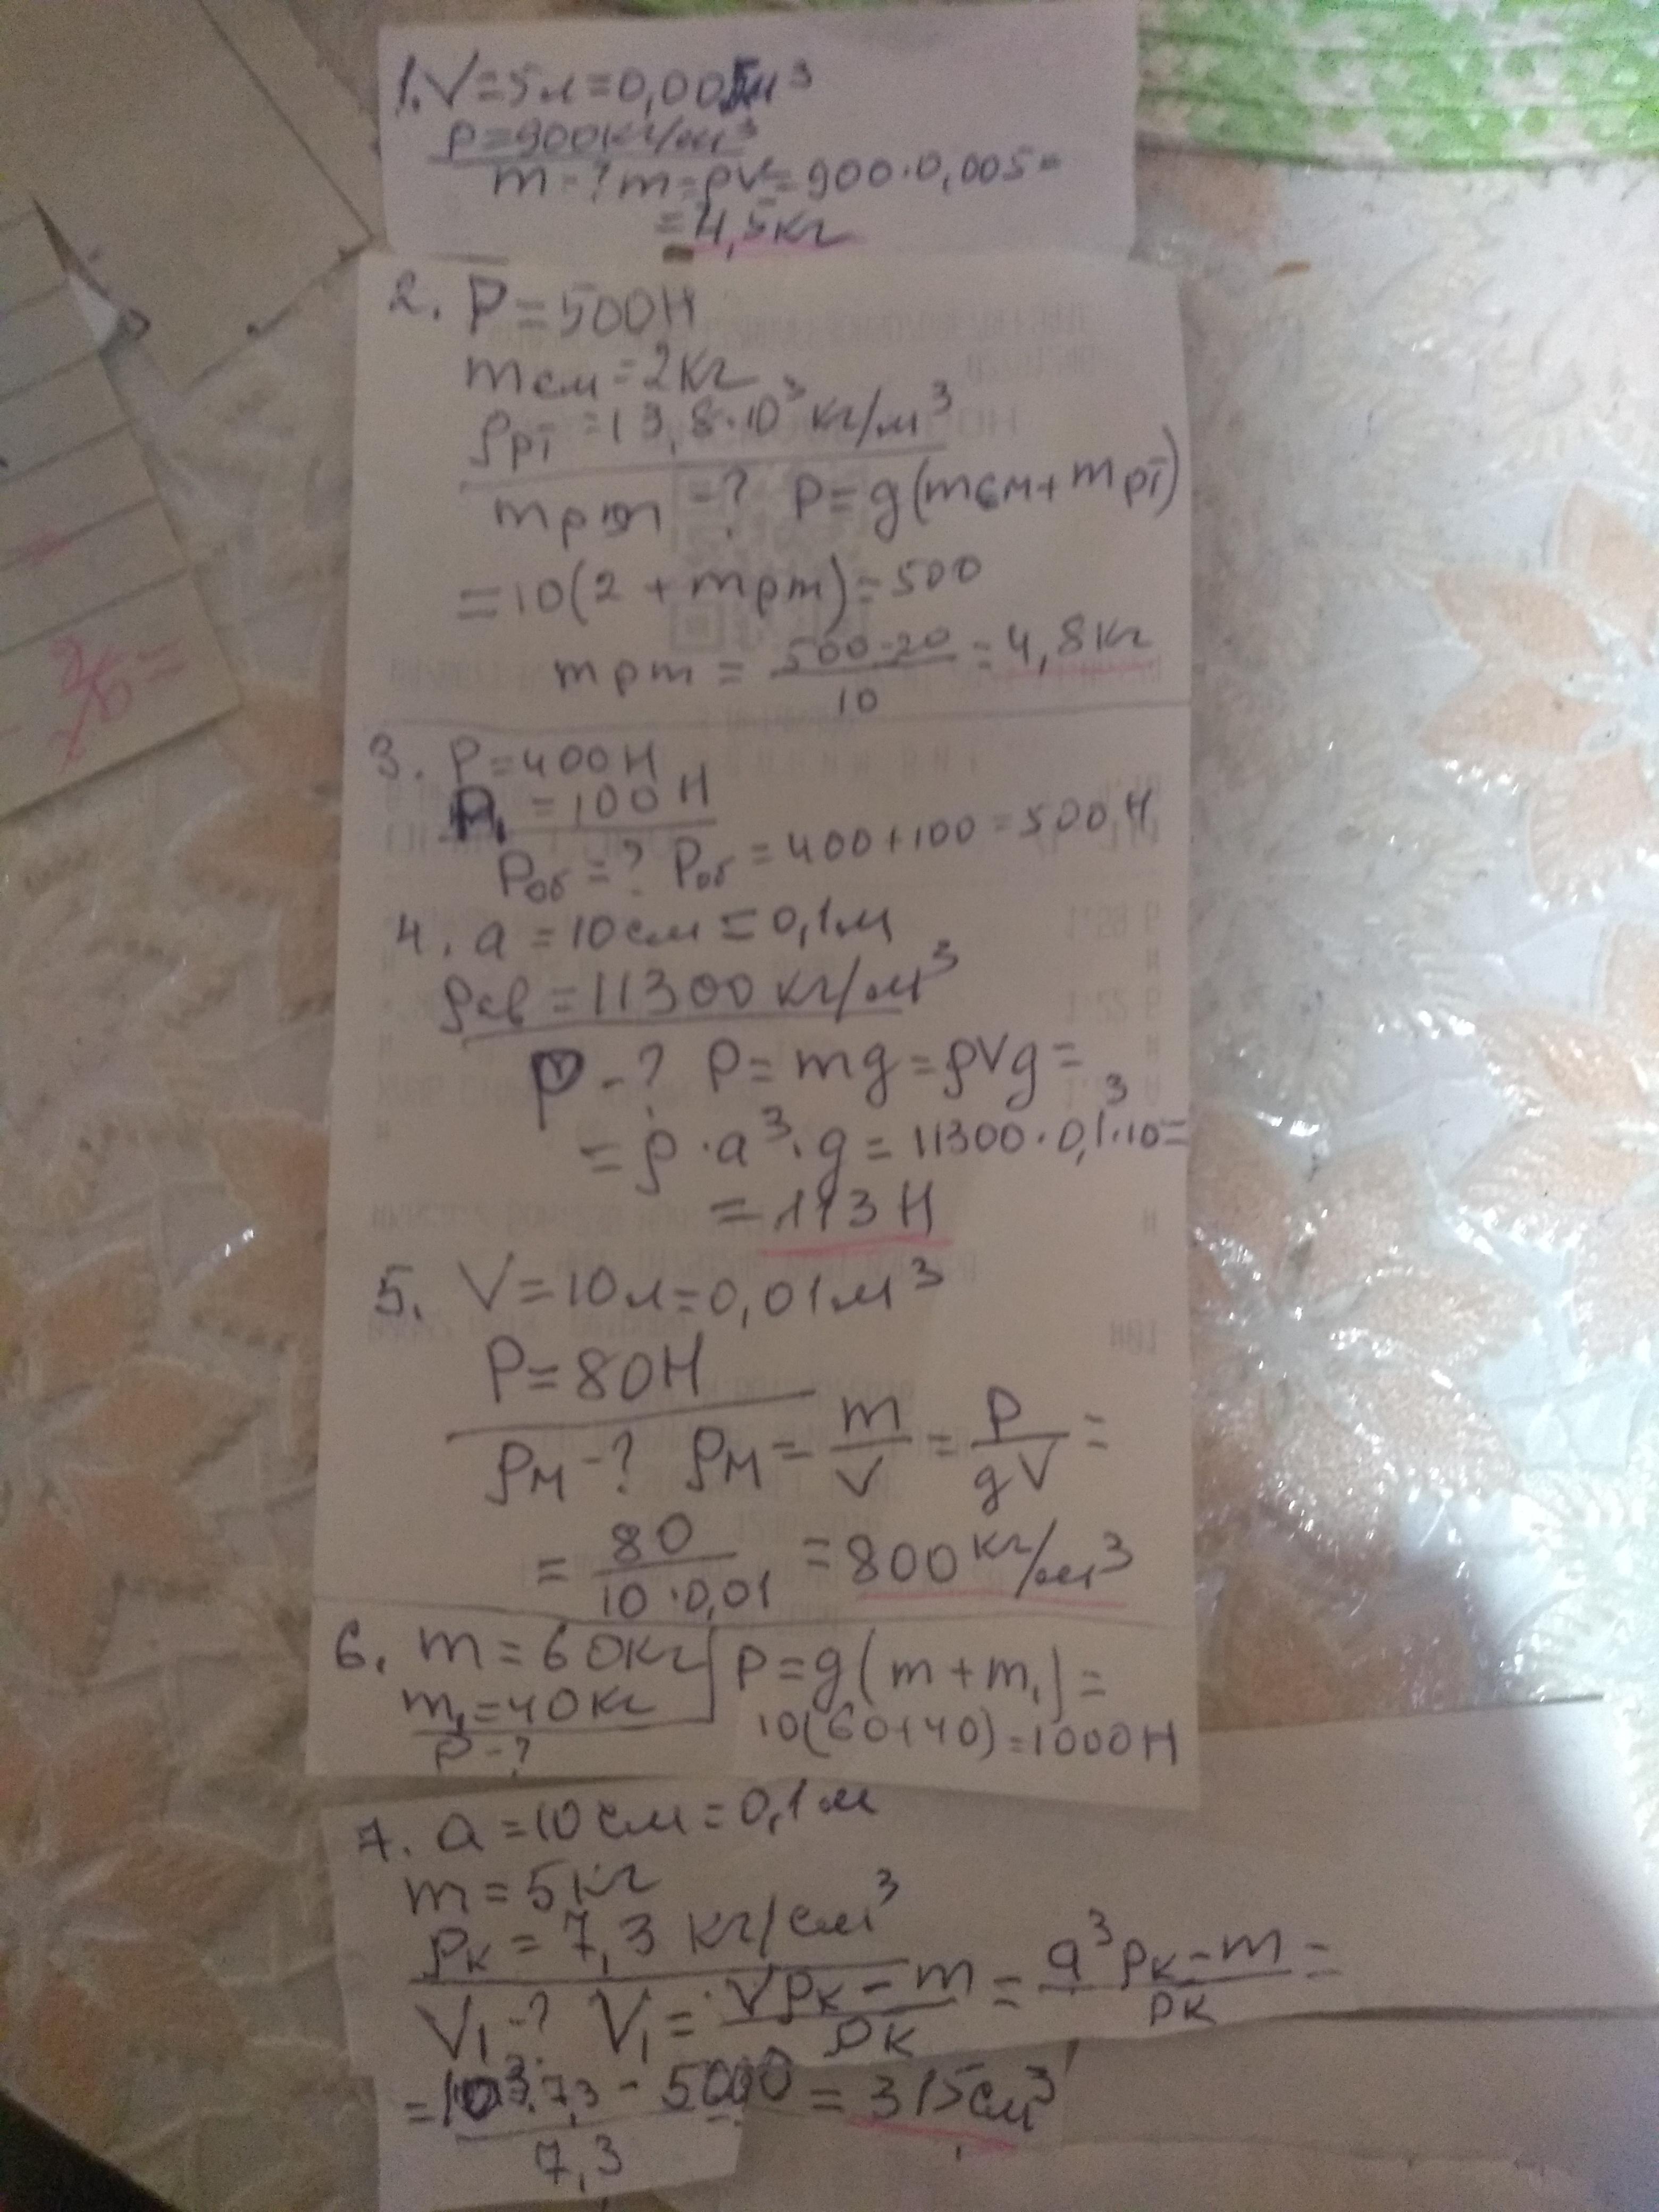 1. V=5л=0,005м³
ρ=900кг/м³
m-? m=ρV=900·0,005=
=4,5кг
2. P=500Н
mсм=2кг
ρрт=13,8·10³ кг/м³
mрт -? P=g(mсм+mрт)
=10(2+mрт)=500
mрт = 500-20/10 =4,8кг
3. P=400Н
P₁=100Н
Pоб=? Pоб=400+100=500Н
4. a=10см=0,1м
ρсв=11300кг/м³
P-? P=mg=ρVg=
=ρ·a³·g=11300·0,1³·10=
=113Н
5. V=10л=0,01м³
P=80Н
ρм-? ρм= m/V = P/gV =
= 80/10·0,01 =800кг/м³
6. m=60кг P=g(m+m₁)=
m₁=40кг 10(60+40)=1000Н
P-?
7. a=10см=0,1м
m=5кг
ρк=7,3 кг/см³
V₁-? V₁= Vρк-m/ρк = a³ρк-m/ρк =
= 10³·7,3-5000/7,3 =315см³